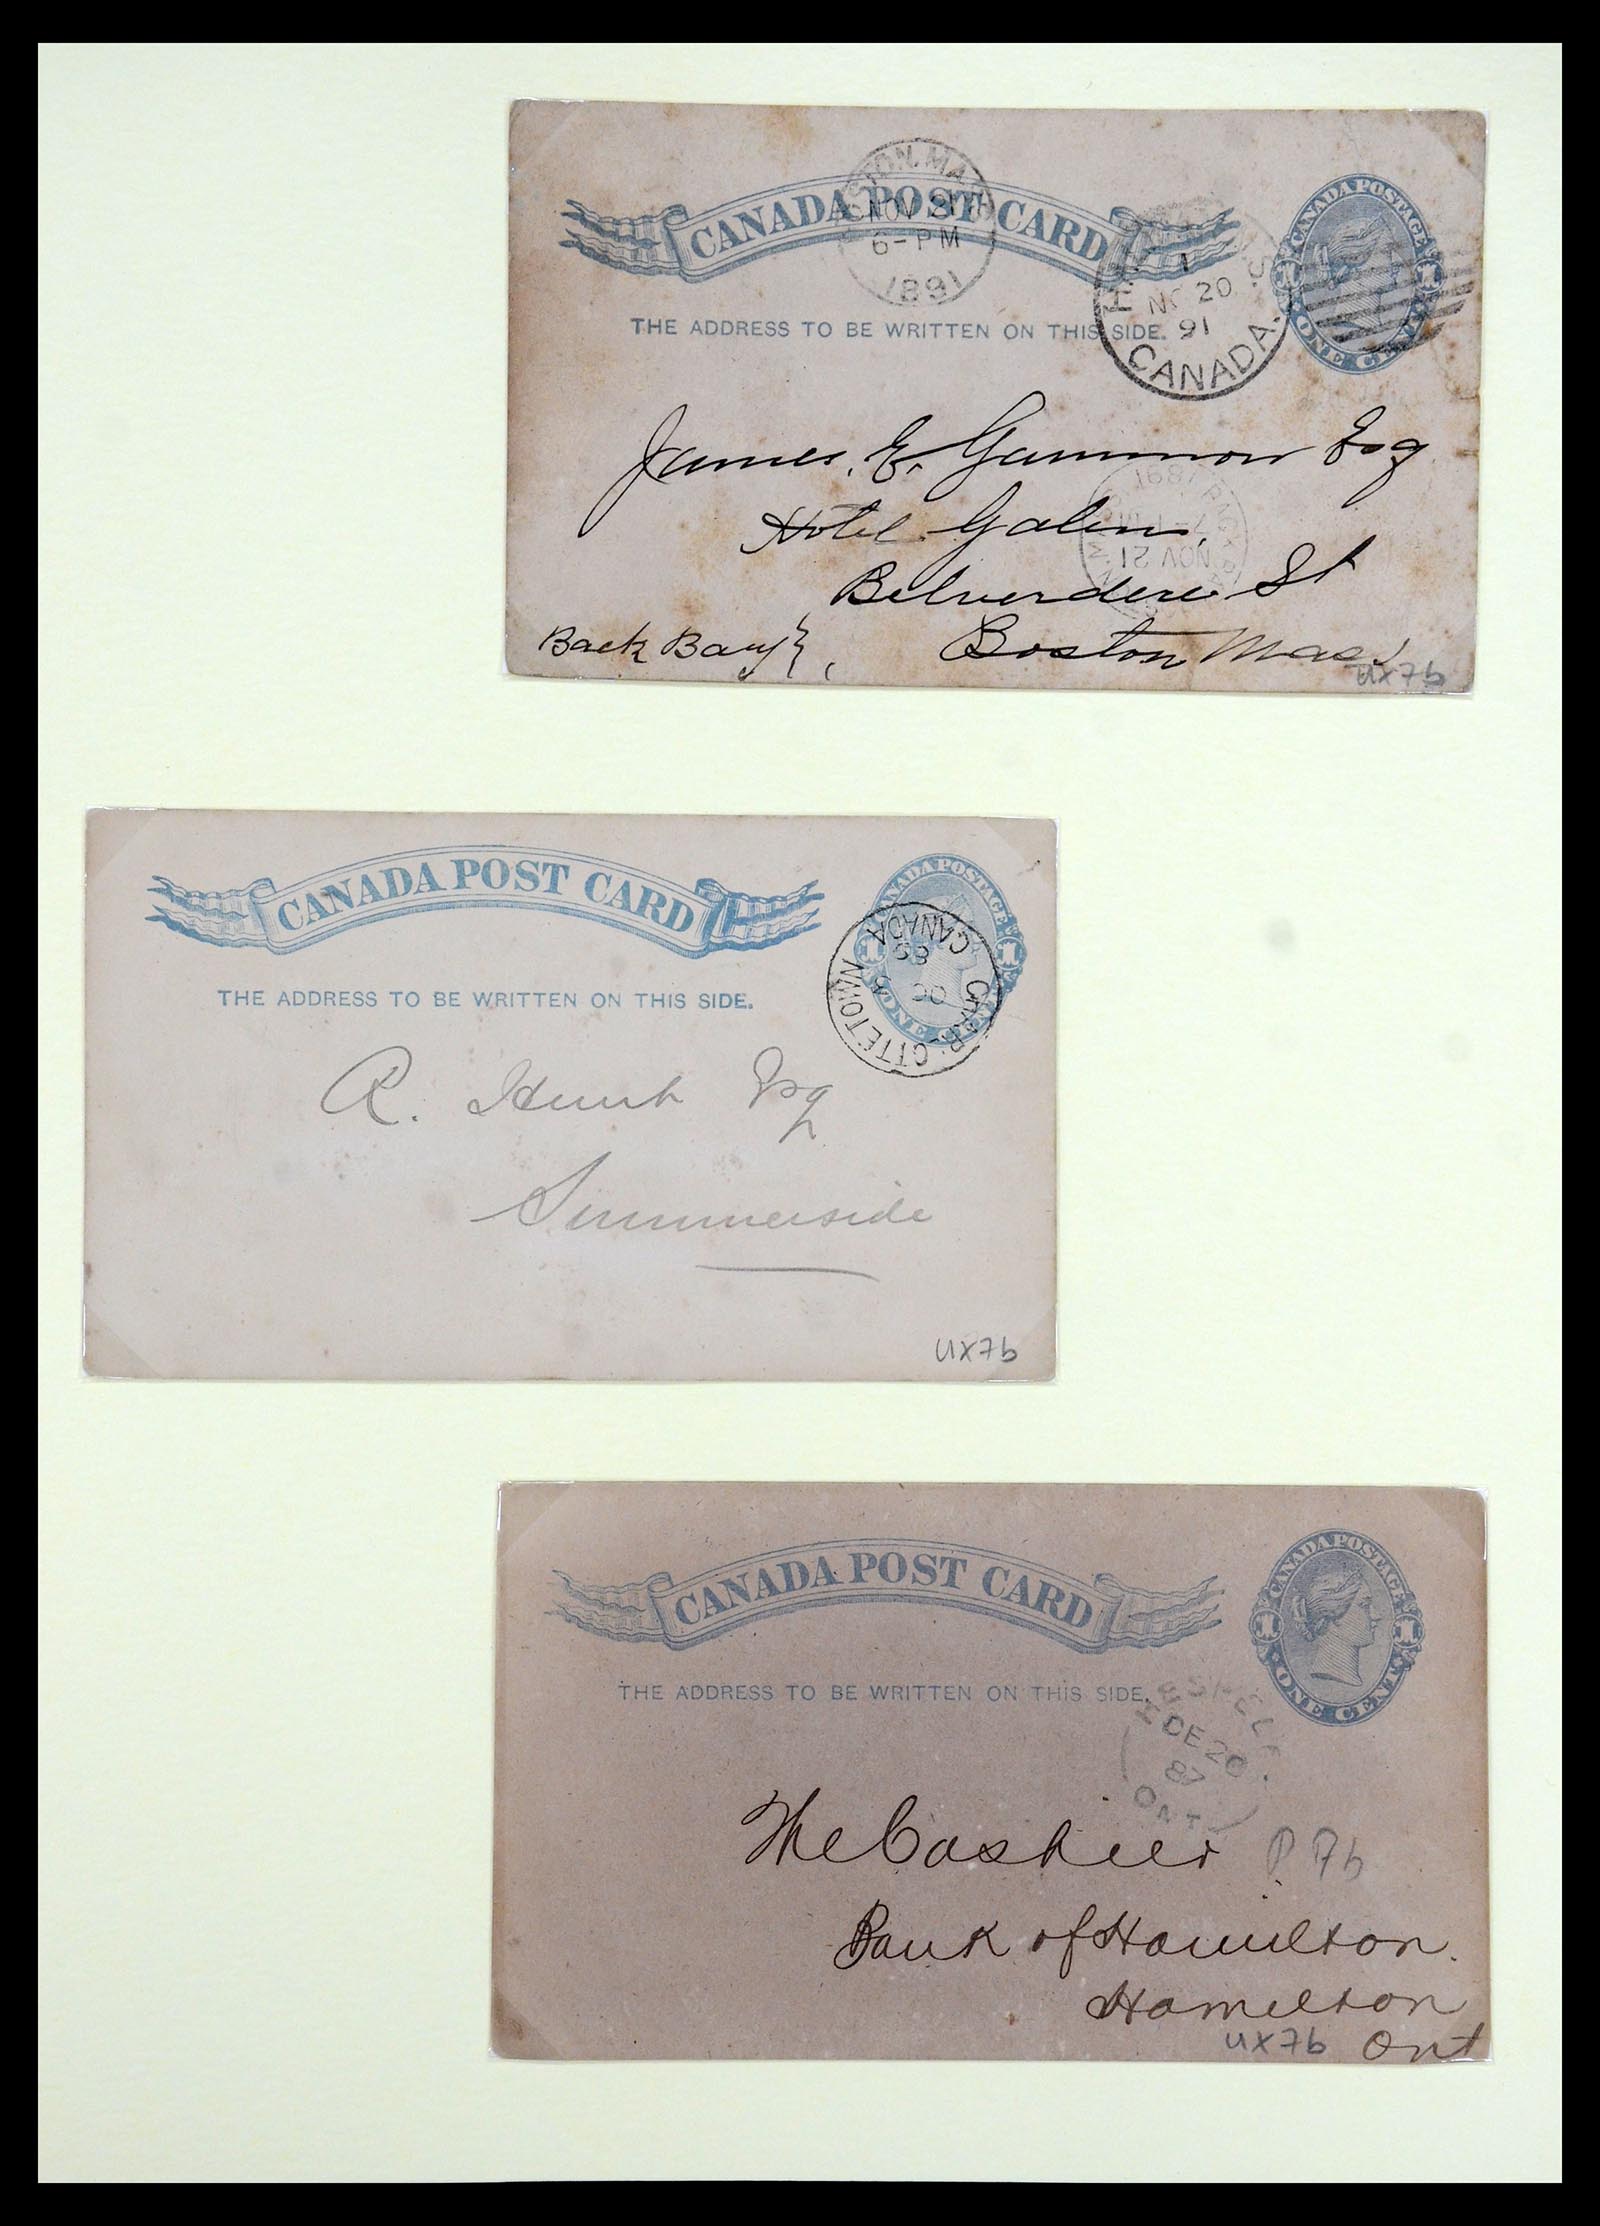 CANADA POST CARD
CANADA POSTAGE
1 1
ONE CENT
THE ADDRESS TO BE WRITTEN ON THIS SIDE.
NOV 21
6-PM
1891
1
20
91
CANADA.
James. E. Gammon Esq
Hotel Galen,
1891
NOV 21
Belverdere St
Back Bay
Boston Mas
UX7b
CANADA POST CARD
CANADA POSTAGE
1 1
ONE CENT
THE ADDRESS TO BE WRITTEN ON THIS SIDE.
CANADA
OC
R. Hunt Esq
Summerside
UX7b
CANADA POST CARD
CANADA POSTAGE
1 1
ONE CENT
THE ADDRESS TO BE WRITTEN ON THIS SIDE.
HESPELER
DE 20
87
ONT
The Cashier
P7b
Bank of Hamilton.
Hamilton
Ont
UX7b